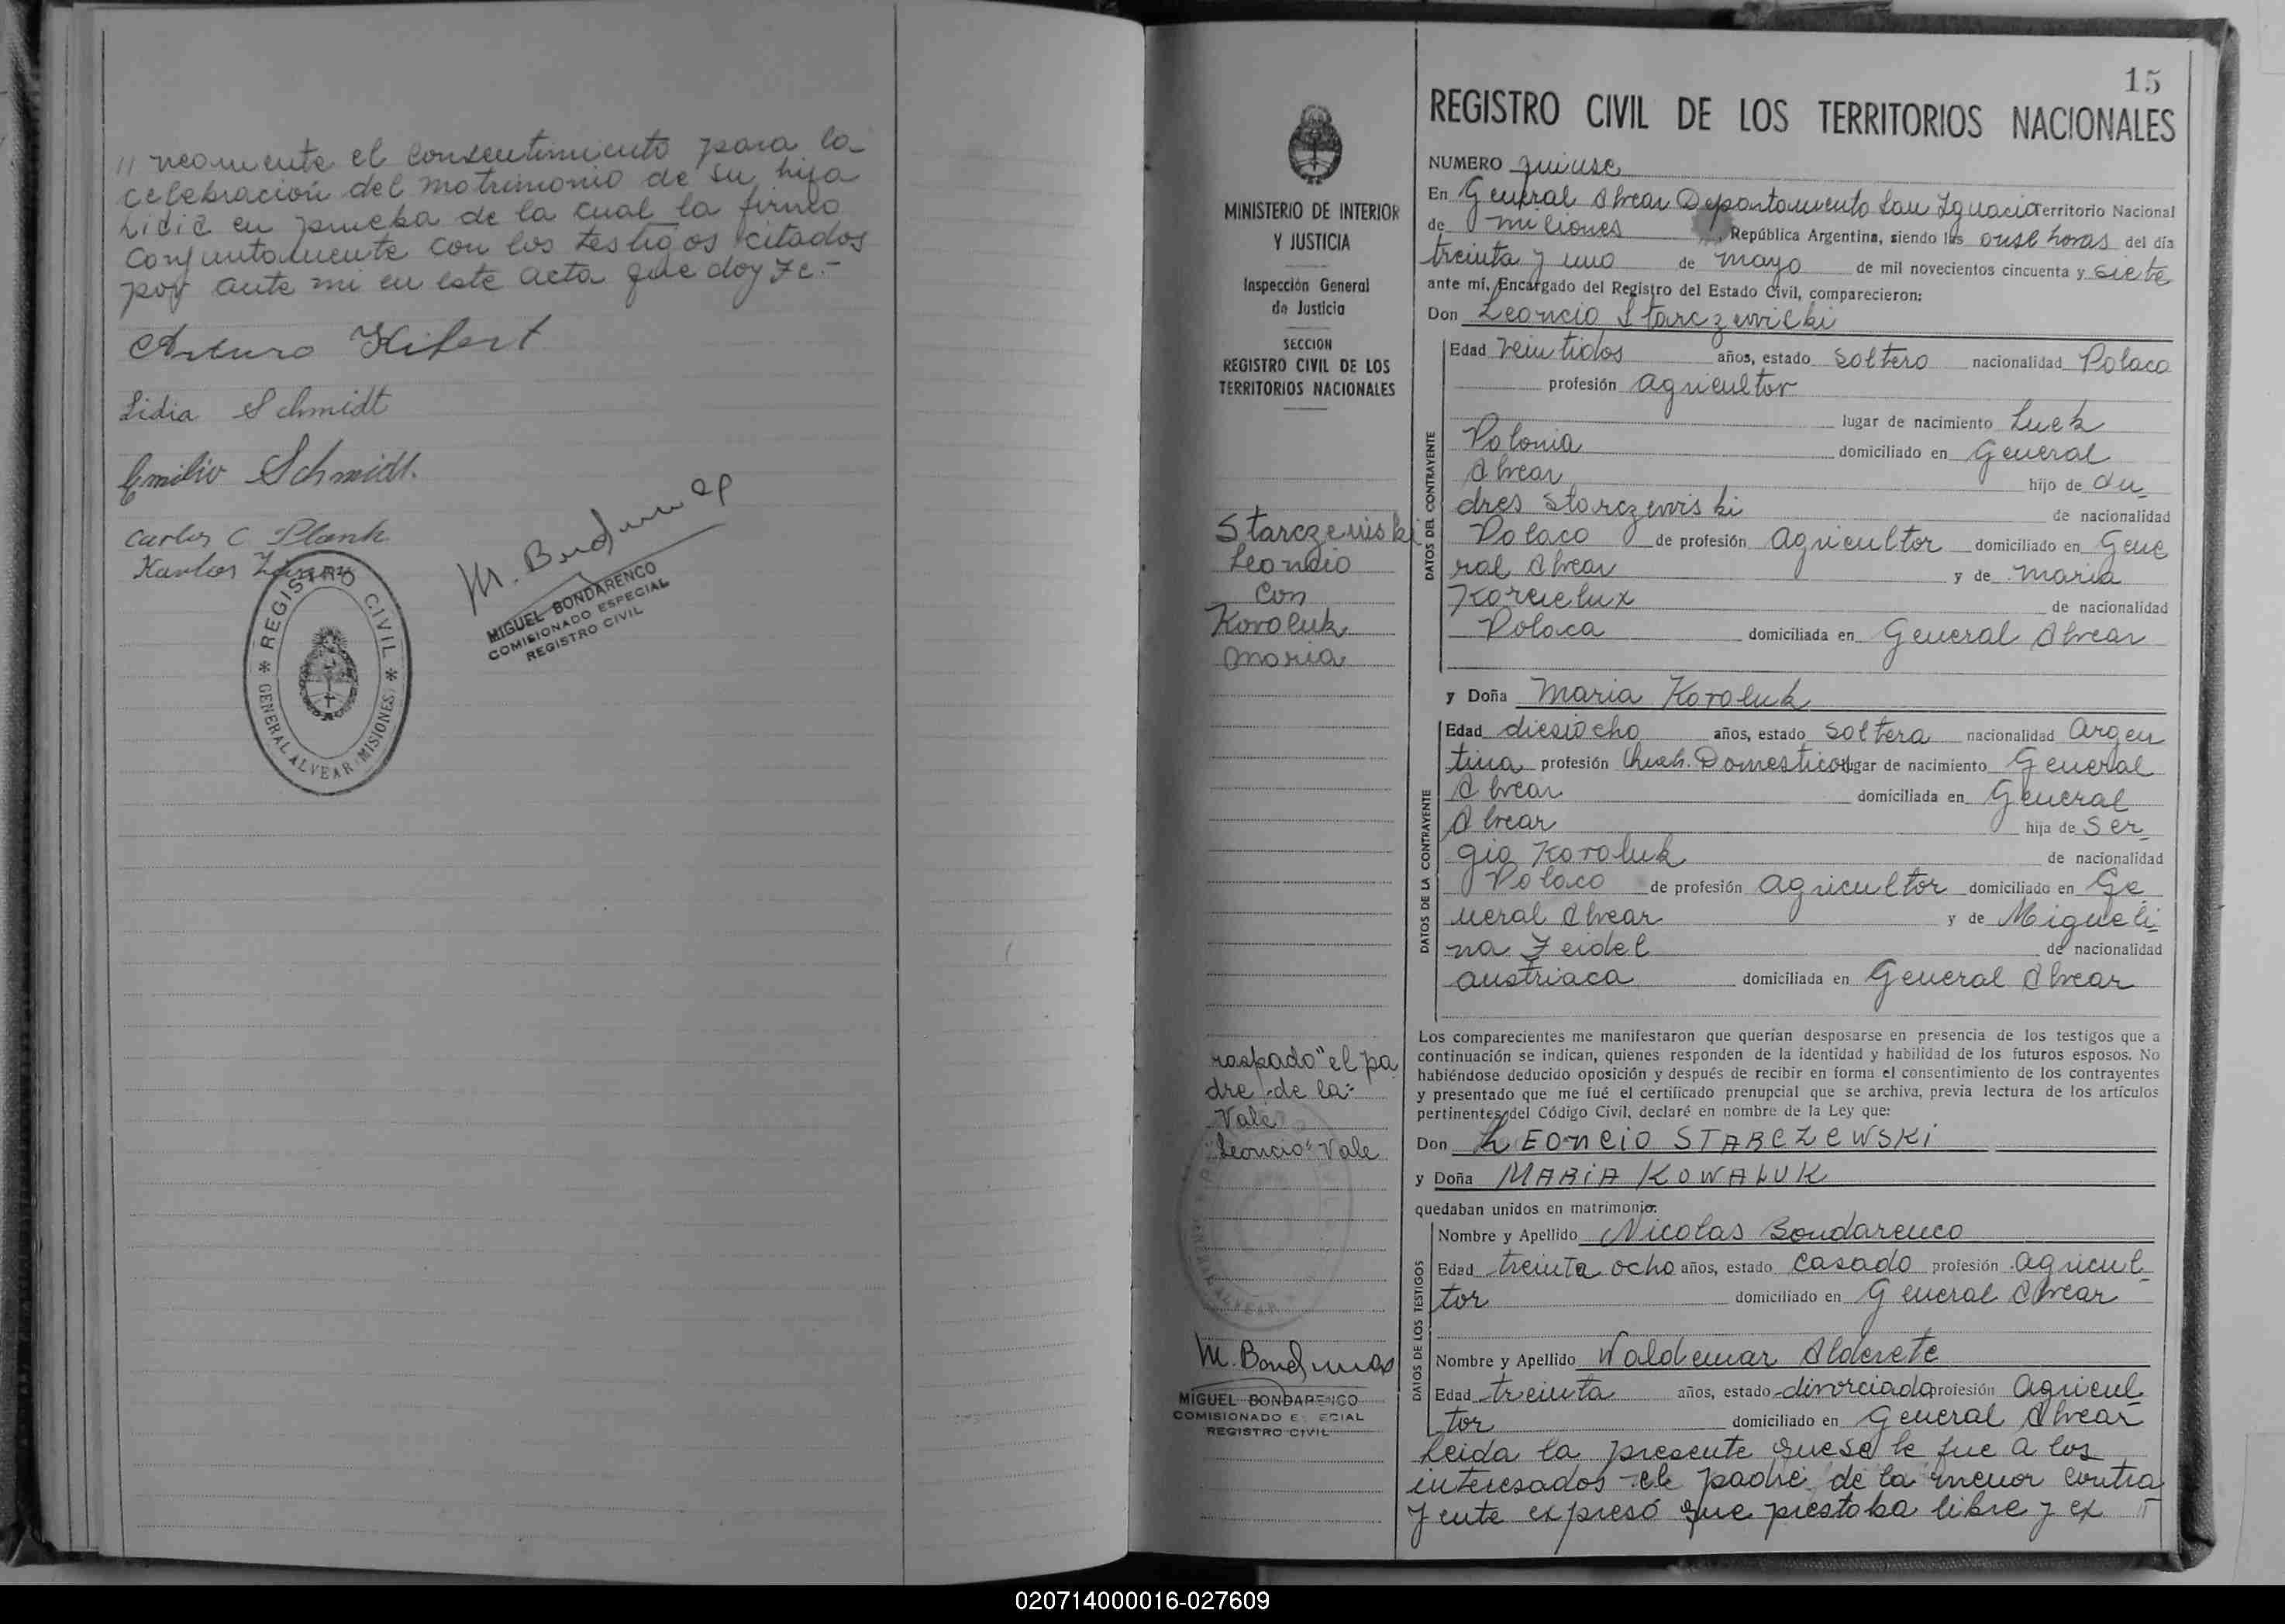 // neamente el consentimiento para la
celebracion del matrimonio de su hija
Lidia en prueba de la cual la firmo
conjuntamente con los testigos citados
por ante mi en este acta que doy Fe.-
Arturo Hifert
Lidia Schmidt
Emilio Schmidt.
Carlos C. Plank
Karlos
M. Bondarenco
MIGUEL BONDARENCO
COMISIONADO ESPECIAL
REGISTRO CIVIL
* REGISTRO CIVIL *
GENERAL ALVEAR (MISIONES)
15
MINISTERIO DE INTERIOR
Y JUSTICIA
Inspección General
de Justicia
SECCION
REGISTRO CIVIL DE LOS
TERRITORIOS NACIONALES
Starczewiski
Leoncio
Con
Koroluk
Maria
raspado "el pa
dre de la"
Vale
"Leoncio" Vale
M. Bondarenco
MIGUEL BONDARENCO
COMISIONADO ESPECIAL
REGISTRO CIVIL
REGISTRO CIVIL DE LOS TERRITORIOS NACIONALES
NUMERO quinse
En General Alvear Departamento San Ignacio Territorio Nacional
de Misiones, República Argentina, siendo las onse horas del día
treinta y uno de mayo de mil novecientos cincuenta y siete
ante mí, Encargado del Registro del Estado Civil, comparecieron:
Don Leoncio Starczewiski
DATOS DEL CONTRAYENTE
Edad veintidos años, estado soltero nacionalidad Polaco
profesión agricultor
lugar de nacimiento Luck
Polonia domiciliado en General
Alvear hijo de An_
dres Starczewiski de nacionalidad
Polaco de profesión agricultor domiciliado en Gene
ral Alvear y de Maria
Korcielux de nacionalidad
Polaca domiciliada en General Alvear
y Doña Maria Koroluk
DATOS DE LA CONTRAYENTE
Edad diesiocho años, estado soltera nacionalidad Argen
tina profesión Queh. Domesticos lugar de nacimiento General
Alvear domiciliada en General
Alvear hija de Ser_
gio Koroluk de nacionalidad
Polaco de profesión agricultor domiciliado en Ge_
neral Alvear y de Migueli_
na Zeidel de nacionalidad
austriaca domiciliada en General Alvear
Los comparecientes me manifestaron que querían desposarse en presencia de los testigos que a
continuación se indican, quienes responden de la identidad y habilidad de los futuros esposos. No
habiéndose deducido oposición y después de recibir en forma el consentimiento de los contrayentes
y presentado que me fué el certificado prenupcial que se archiva, previa lectura de los artículos
pertinentes del Código Civil, declaré en nombre de la Ley que:
Don LEONCIO STARCZEWSKI
y Doña MARIA KOWALUK
quedaban unidos en matrimonio.
DATOS DE LOS TESTIGOS
Nombre y Apellido Nicolas Bondarenco
Edad treinta ocho años, estado casado profesión agricul_
tor domiciliado en General Alvear
Nombre y Apellido Waldemar Alderete
Edad treinta años, estado divorciado profesión agricul_
tor domiciliado en General Alvear
Leida la presente que se le fue a los
interesados el padre de la menor contra
yente expresó que prestaba libre y ex //
020714000016-027609